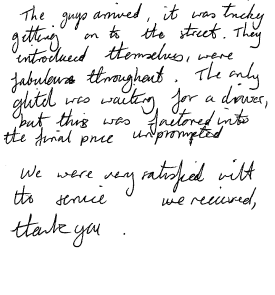 The guys arrived, it was tricky
getting on to the street. They
introduced themselves, were
fabulous throughout. The only
glitch was waiting for a driver,
but this was factored into
the final price unprompted
We were very satisfied with
the service we received,
thank you.